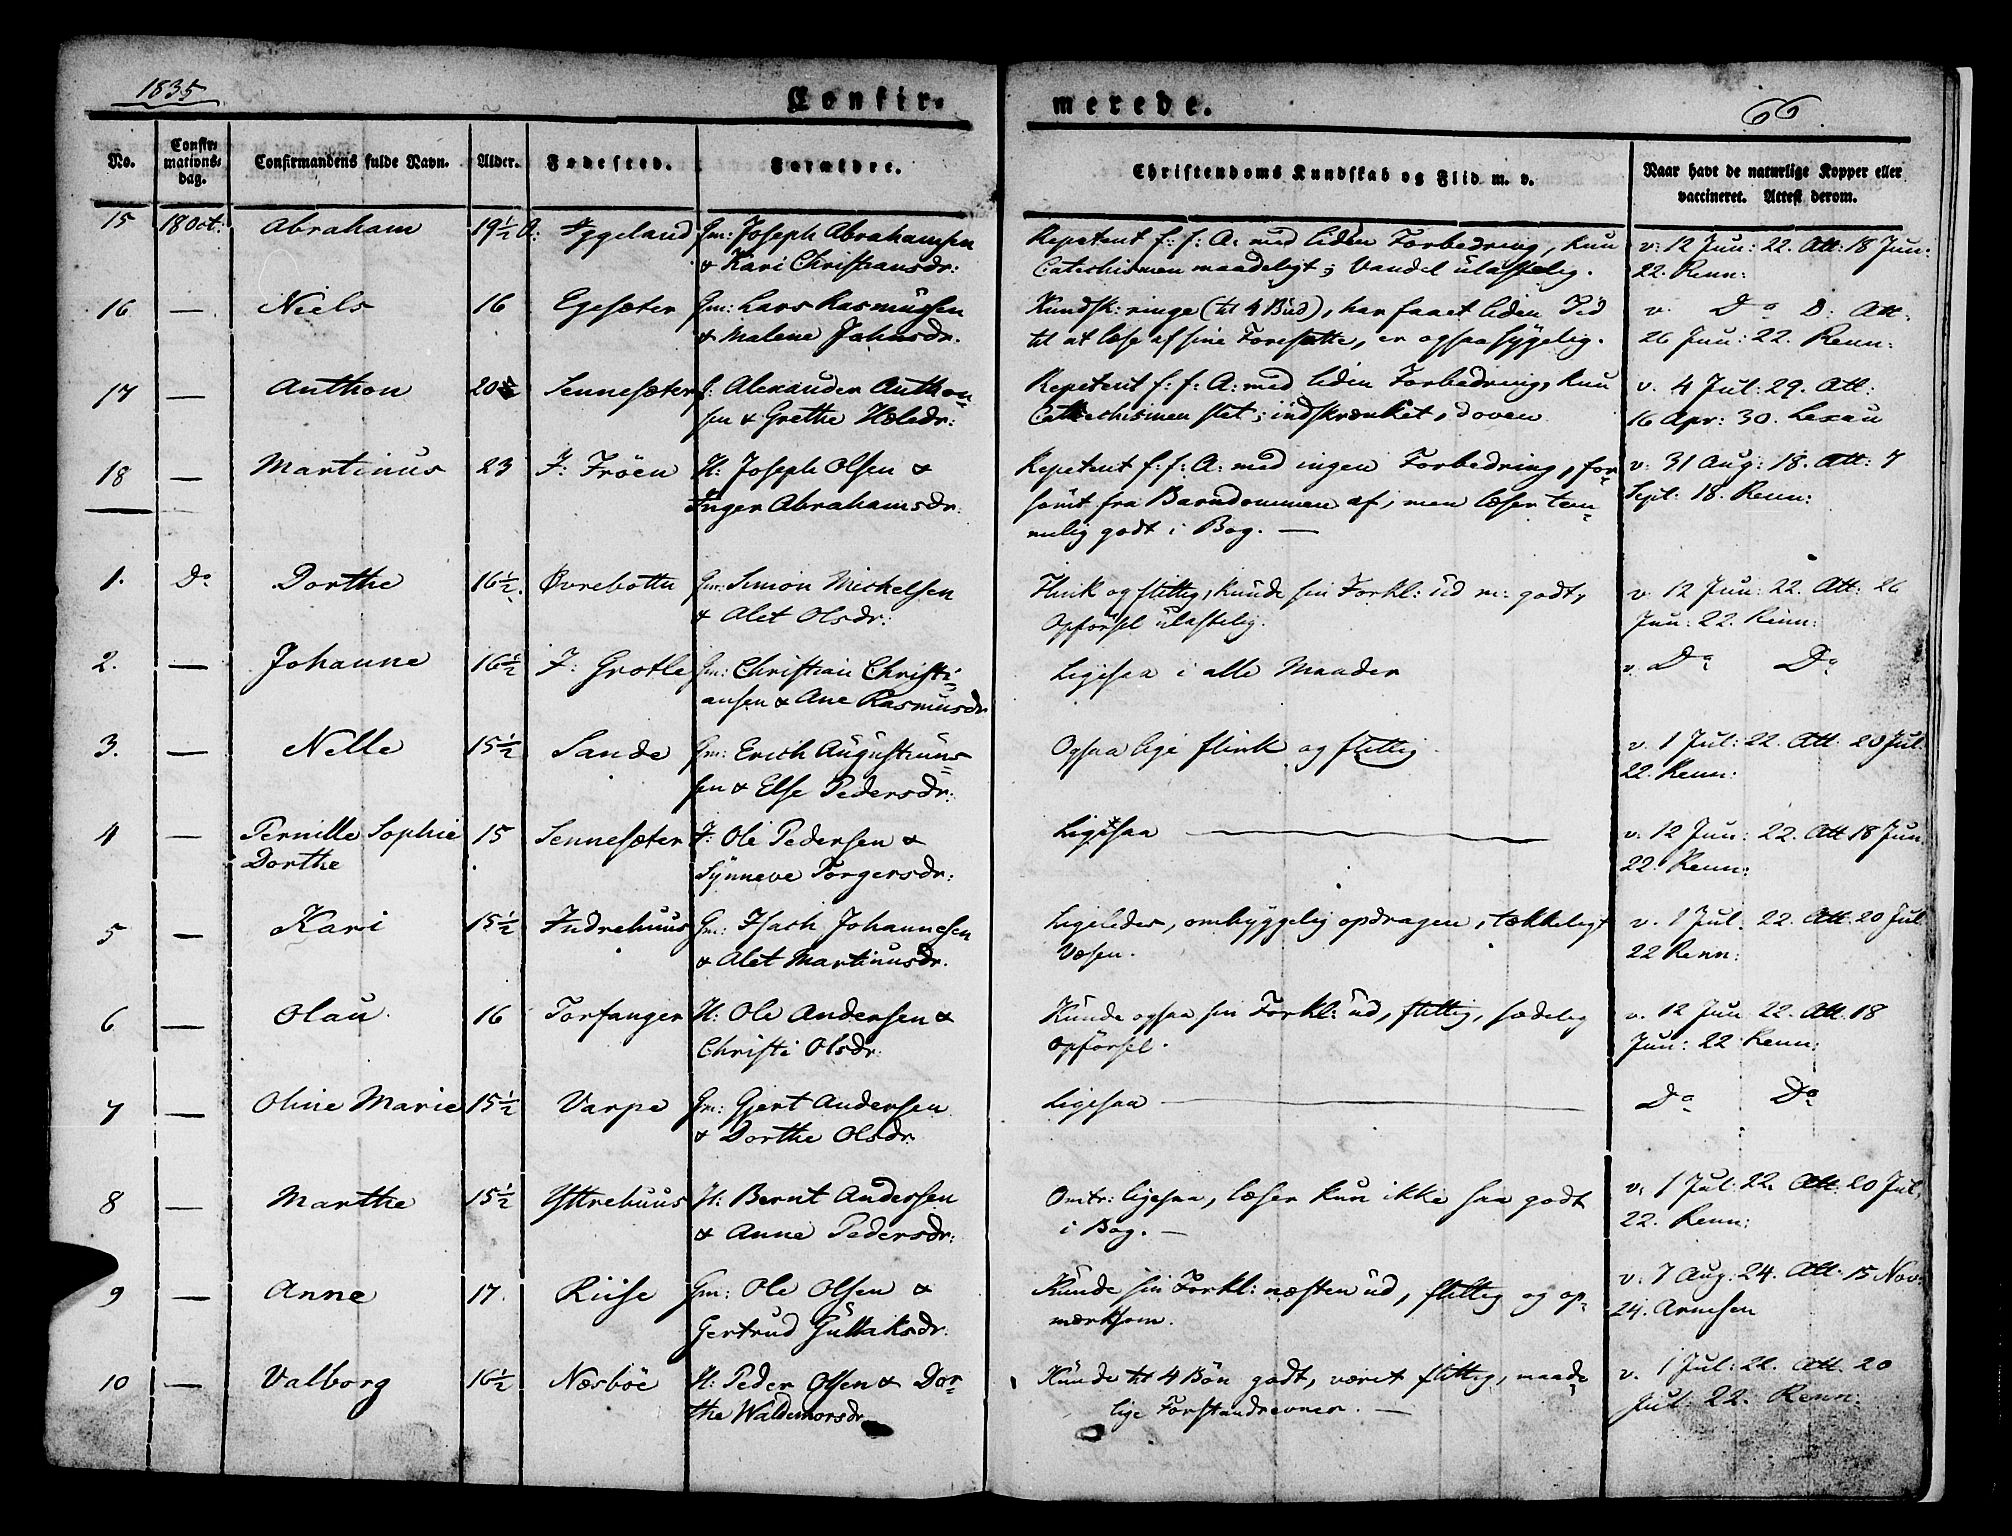 1835
Confir-
merede.
66
No.
Confir-
mations-
dag.
Confirmandens fulde Navn.
Alder.
Fødested.
Forældre.
Christendoms Kundskab og Flid m. v.
Naar havt de naturlige Kopper eller
vaccineret. Attest derom.
15 18 Oct: Abraham 19½ A: Yggeland Gm: Joseph Abrahamsen Repetent f: f: A: med liden Forbedring, kun v: 12 Jun: 22. Att: 18 Jun:
& Kari Christiansdr: Catechismen maadeligt; Vandel ulastelig. 22. Renn:
16 — Niels 16 Egesæter Gm: Lars Rasmussen Kundsk: ringe (til 4 Bud), har faaet liden Tid v. Do D: Att:
& Malene Johnsdr. til at læse af sine Foresatte, er ogsaa sygelig. 26 Jun: 22. Renn:
17 — Anthon 20 Sennesæter f: Alexander Anthon= Repetent f: f: A: med liden Forbedring, kun v. 4 Jul: 29. Att:
sen & Grethe Helsdr: Catechismen slet; indskrænket, doven 16 Apr: 30. Lexau
18 — Martinus 23 F: Fröen H: Joseph Olsen & Repetent f: f: A: med ingen Forbedring, for= v: 31 Aug: 18. Att: 7
Inger Abrahamsdr: sömt fra Barndommen af, men læser tem= Sept. 18. Renn:
melig godt i Bog. —
1. Do Dorthe 16½. Øvrebotn Gm: Simon Michelsen Flink og flittig, kunde sin Forkl: ud m: godt, v. 12 Jun: 22. Att: 26
& Alet Olsdr: Opförsel ulastelig. Jun: 22. Renn:
2. — Johanne 16½ F: Grotle Gm: Christian Christi= Ligesaa i alle Maader v. Do Do
ansen & Ane Rasmusdr
3. — Nelle 15½ Sande Gm: Erich Augustinus= Ogsaa lige flink og flittig v. 1 Jul: 22. Att: 20 Jul:
sen & Else Pedersdr: 22. Renn:
4 — Pernille Sophie 15 Sennesæter F: Ole Pedersen & Ligesaa — v: 12 Jun: 22. Att 18 Jun:
Dorthe Synneve Torgersdr: 22. Renn:
5 — Kari 15½ Indrehuus Gm: Isach Johannesen Ligeledes, omhyggelig opdragen, tækkeligt v. 1 Jul: 22 Att. 20 Jul
& Alet Martinusdr. Væsen. 22 Renn:
6 — Olau 16 Torfanger H: Ole Andersen & Kunde ogsaa sin Forkl: ud, flittig, sædelig v. 12 Jun 22 Att. 18
Christi Olsdr: Opförsel. Jun: 22 Renn:
7 — Oline Marie 15½ Varpe Gm: Gjert Andersen Ligesaa — Do Do
& Dorthe Olsdr:
8 — Marthe 15½ Yttrehuus H: Bernt Andersen Omtr: ligesaa, læser kun ikke saa godt v. 1 Jul: 22. Att: 20 Jul,
& Anne Pedersdr: i Bog. — 22. Renn:
9 — Anne 17. Riise Gm: Ole Olsen & Kunde sin Forkl: næsten ud, flittig og op= v: 7 Aug: 24. Att: 15 Nov:
Gertrud Gullaksdr: mærksom. 24. Arnesen
10 — Valborg 16½ Næsböe H: Peder Olsen & Dor= Kunde til 4 Bön godt, været flittig, maade= v. 1 Jul: 22. Att. 20
the Waldemorsdr lige Forstandsevner. — Jul: 22. Renn: